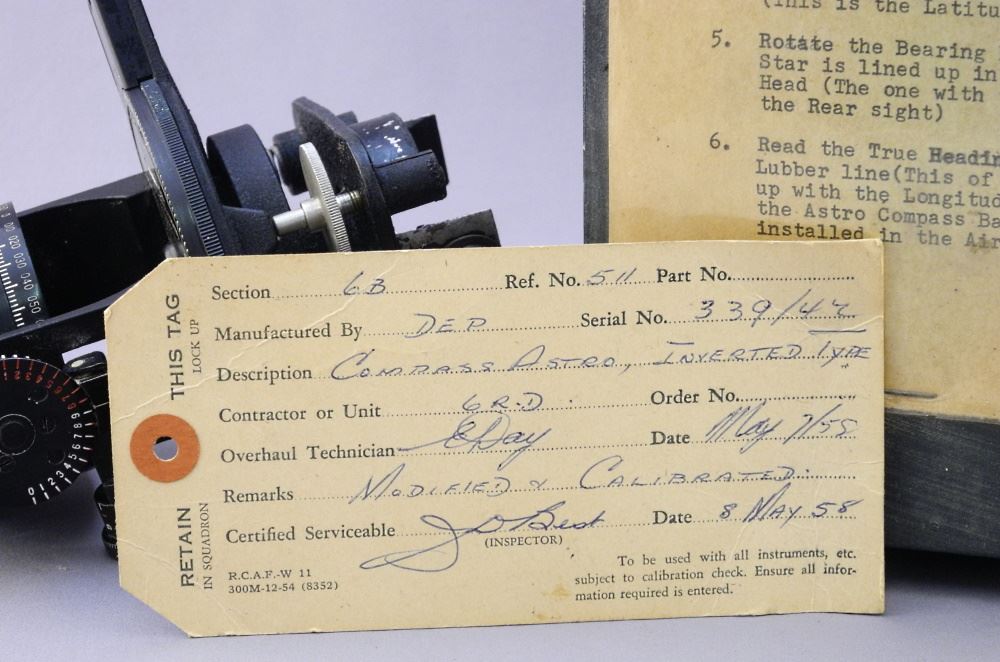 (This is the Latitu
5. Rotate the Bearing
Star is lined up in
Head (The one with
the Rear sight)
6. Read the True Headin
Lubber line(This of
up with the Longitud
the Astro Compass Ba
installed in the Air
Section 6B Ref. No. 511 Part No.
Manufactured By DEP Serial No. 339/42
Description COMPASS ASTRO, INVERTED TYPE
Contractor or Unit 6R.D. Order No.
Overhaul Technician E Day Date May 7/58
Remarks MODIFIED & CALIBRATED.
Certified Serviceable J D Best Date 8 MAY 58
(INSPECTOR)
R.C.A.F.-W 11
300M-12-54 (8352)
To be used with all instruments, etc.
subject to calibration check. Ensure all infor-
mation required is entered.
RETAIN THIS TAG
IN SQUADRON LOCK UP
00 010 020 030 040 050
0 1 2 3 4 5 6 7 8 9